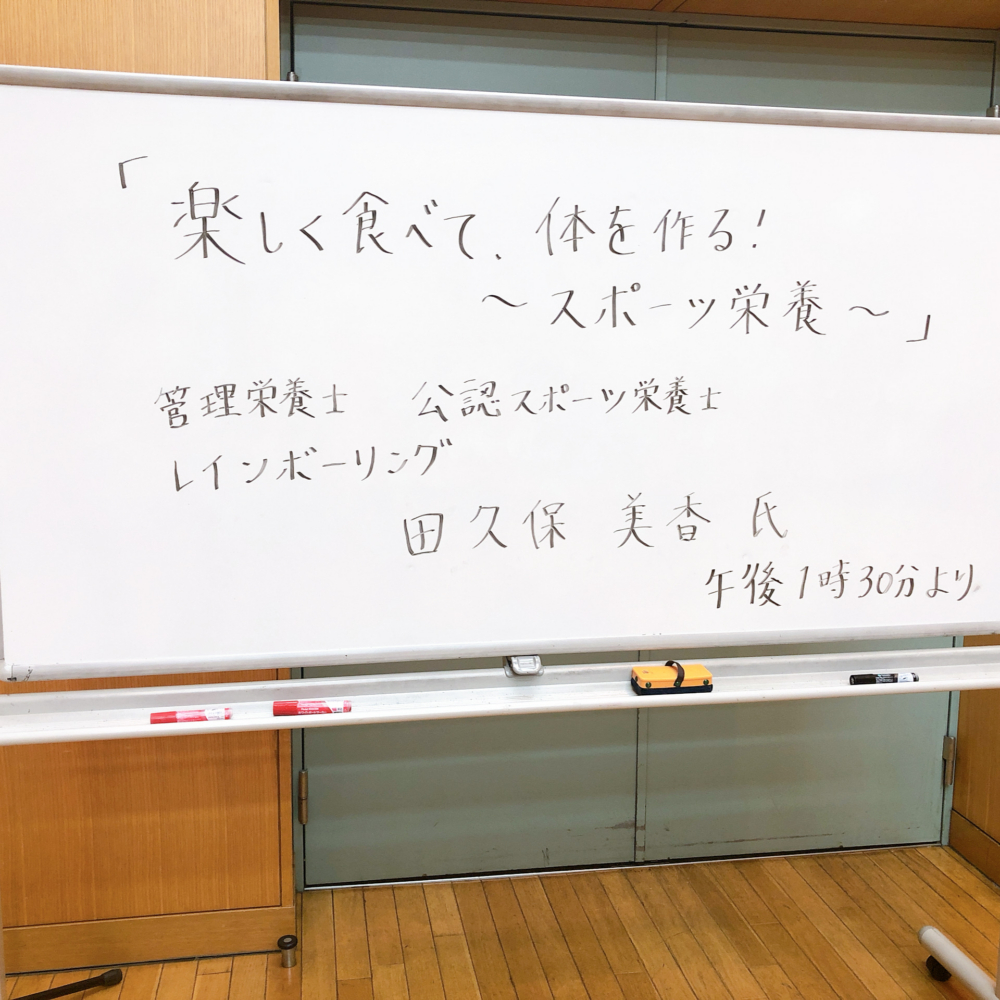 「楽しく食べて、体を作る!
～スポーツ栄養～」
管理栄養士 公認スポーツ栄養士
レインボーリング
田久保 美香 氏
午後1時30分より